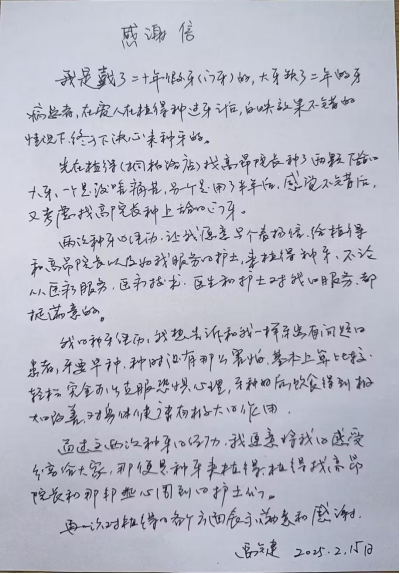 感谢信
我是戴了二十年假牙(门牙)的,大牙缺了二年的牙
病患者,在爱人在植得种过牙之后,自味效果不错的
情况下,终于下决心来种牙的。
先在植得(桐柏路店)找高昂院长种了两颗下给
大牙,一个是没啥痛苦,另一个是用了半年后,感觉不错后,
又考虑找高院长种上给门牙。
两次种牙的活动,让我愿意写个看扬信,给植得
和高昂院长以及如我服务的护士,来植得种牙,不论
从医疗服务,医疗技术,医生和护士对我的服务,都
挺满意的。
我的种牙经历,我想告诉和我一样牙患有问题的
患者,牙要早种,种时没有那么害怕,基本上算比较
轻松,完全可以克服恐惧心理,牙种的后饮食得到极
大的改善,对身体健康有极大的作用。
通过这两次种牙的经历,我愿意将我的感受
分享给大家,那便是种牙来植得,植得找高昂
院长和那那些心周到的护士们。
再一次对植得的各个方面表示满意和感谢。
2025.2.15日